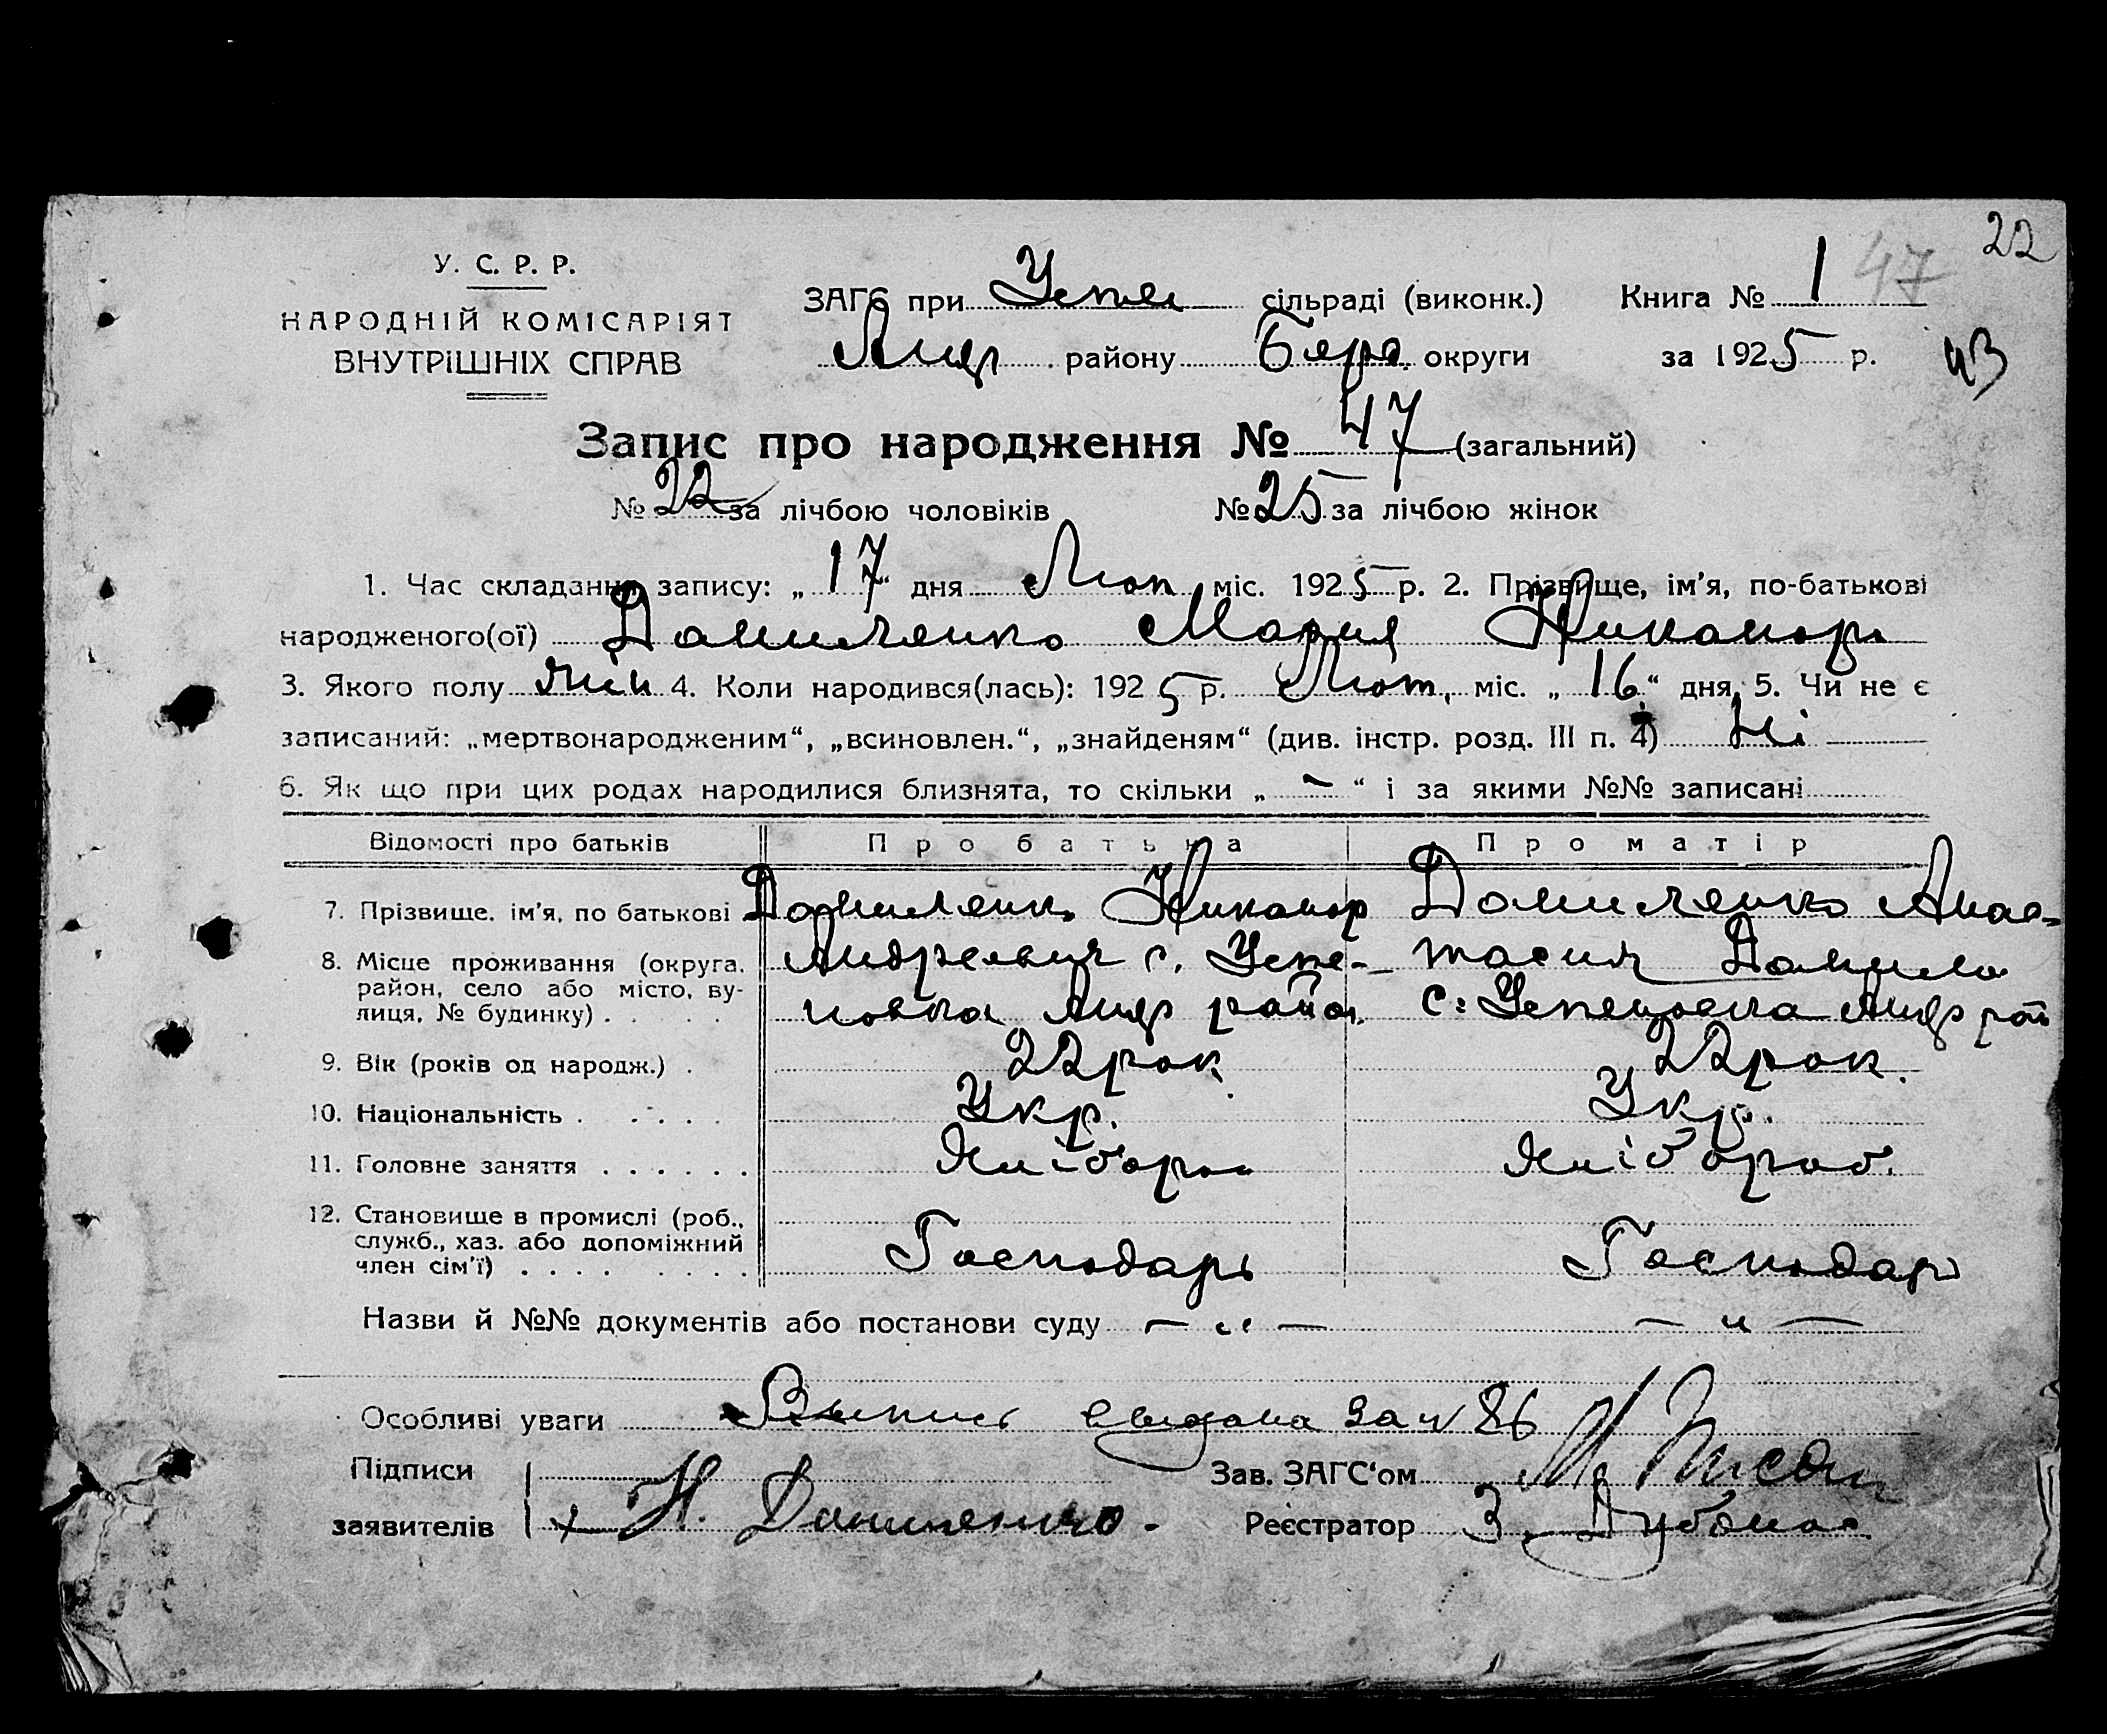 22
У. С. Р. Р.
НАРОДНІЙ КОМІСАРІЯТ
ВНУТРІШНІХ СПРАВ
ЗАГС при Успен сільраді (виконк.) Книга № 1 47
Андр району Бердя. округи за 1925 р. 43
Запис про народження № 47 (загальний)
№ 22 за лічбою чоловіків № 25 за лічбою жінок
1. Час складання запису: „17“ дня Лют міс. 1925 р. 2. Прізвище, ім’я, по-батькові
народженого(ої) Даниленко Мария Никанор
3. Якого полу жін 4. Коли народився(лась): 1925 р. Лют, міс. „16“ дня, 5. Чи не є
записаний: „мертвонародженим“, „всиновлен.“, „знайденям“ (див. інстр. розд. III п. 4) Ні
6. Як що при цих родах народилися близнята, то скільки „ - “ і за якими №№ записані
Відомості про батьків Про батька Про матір
7. Прізвище, ім’я, по батькові Даниленко Никанор Даниленко Анас-
8. Місце проживання (округа, Андреевич с. Успе- тасия Данило
район, село або місто, ву-
лиця, № будинку) новка Андр район. с: Успеновка Андр рай
9. Вік (років од народж.) 22 рок 22 рок.
10. Національність Укр. Укр.
11. Головне заняття Хлібороб Хлібороб.
12. Становище в промислі (роб.,
служб., хаз. або допоміжний Господарь Господар
член сім’ї)
Назви й №№ документів або постанови суду — „ — — „ —
Особливі уваги Выпись выдана за № 86
Підписи Зав. ЗАГС‘ом
заявителів + Н. Даниленко. Реєстратор З.